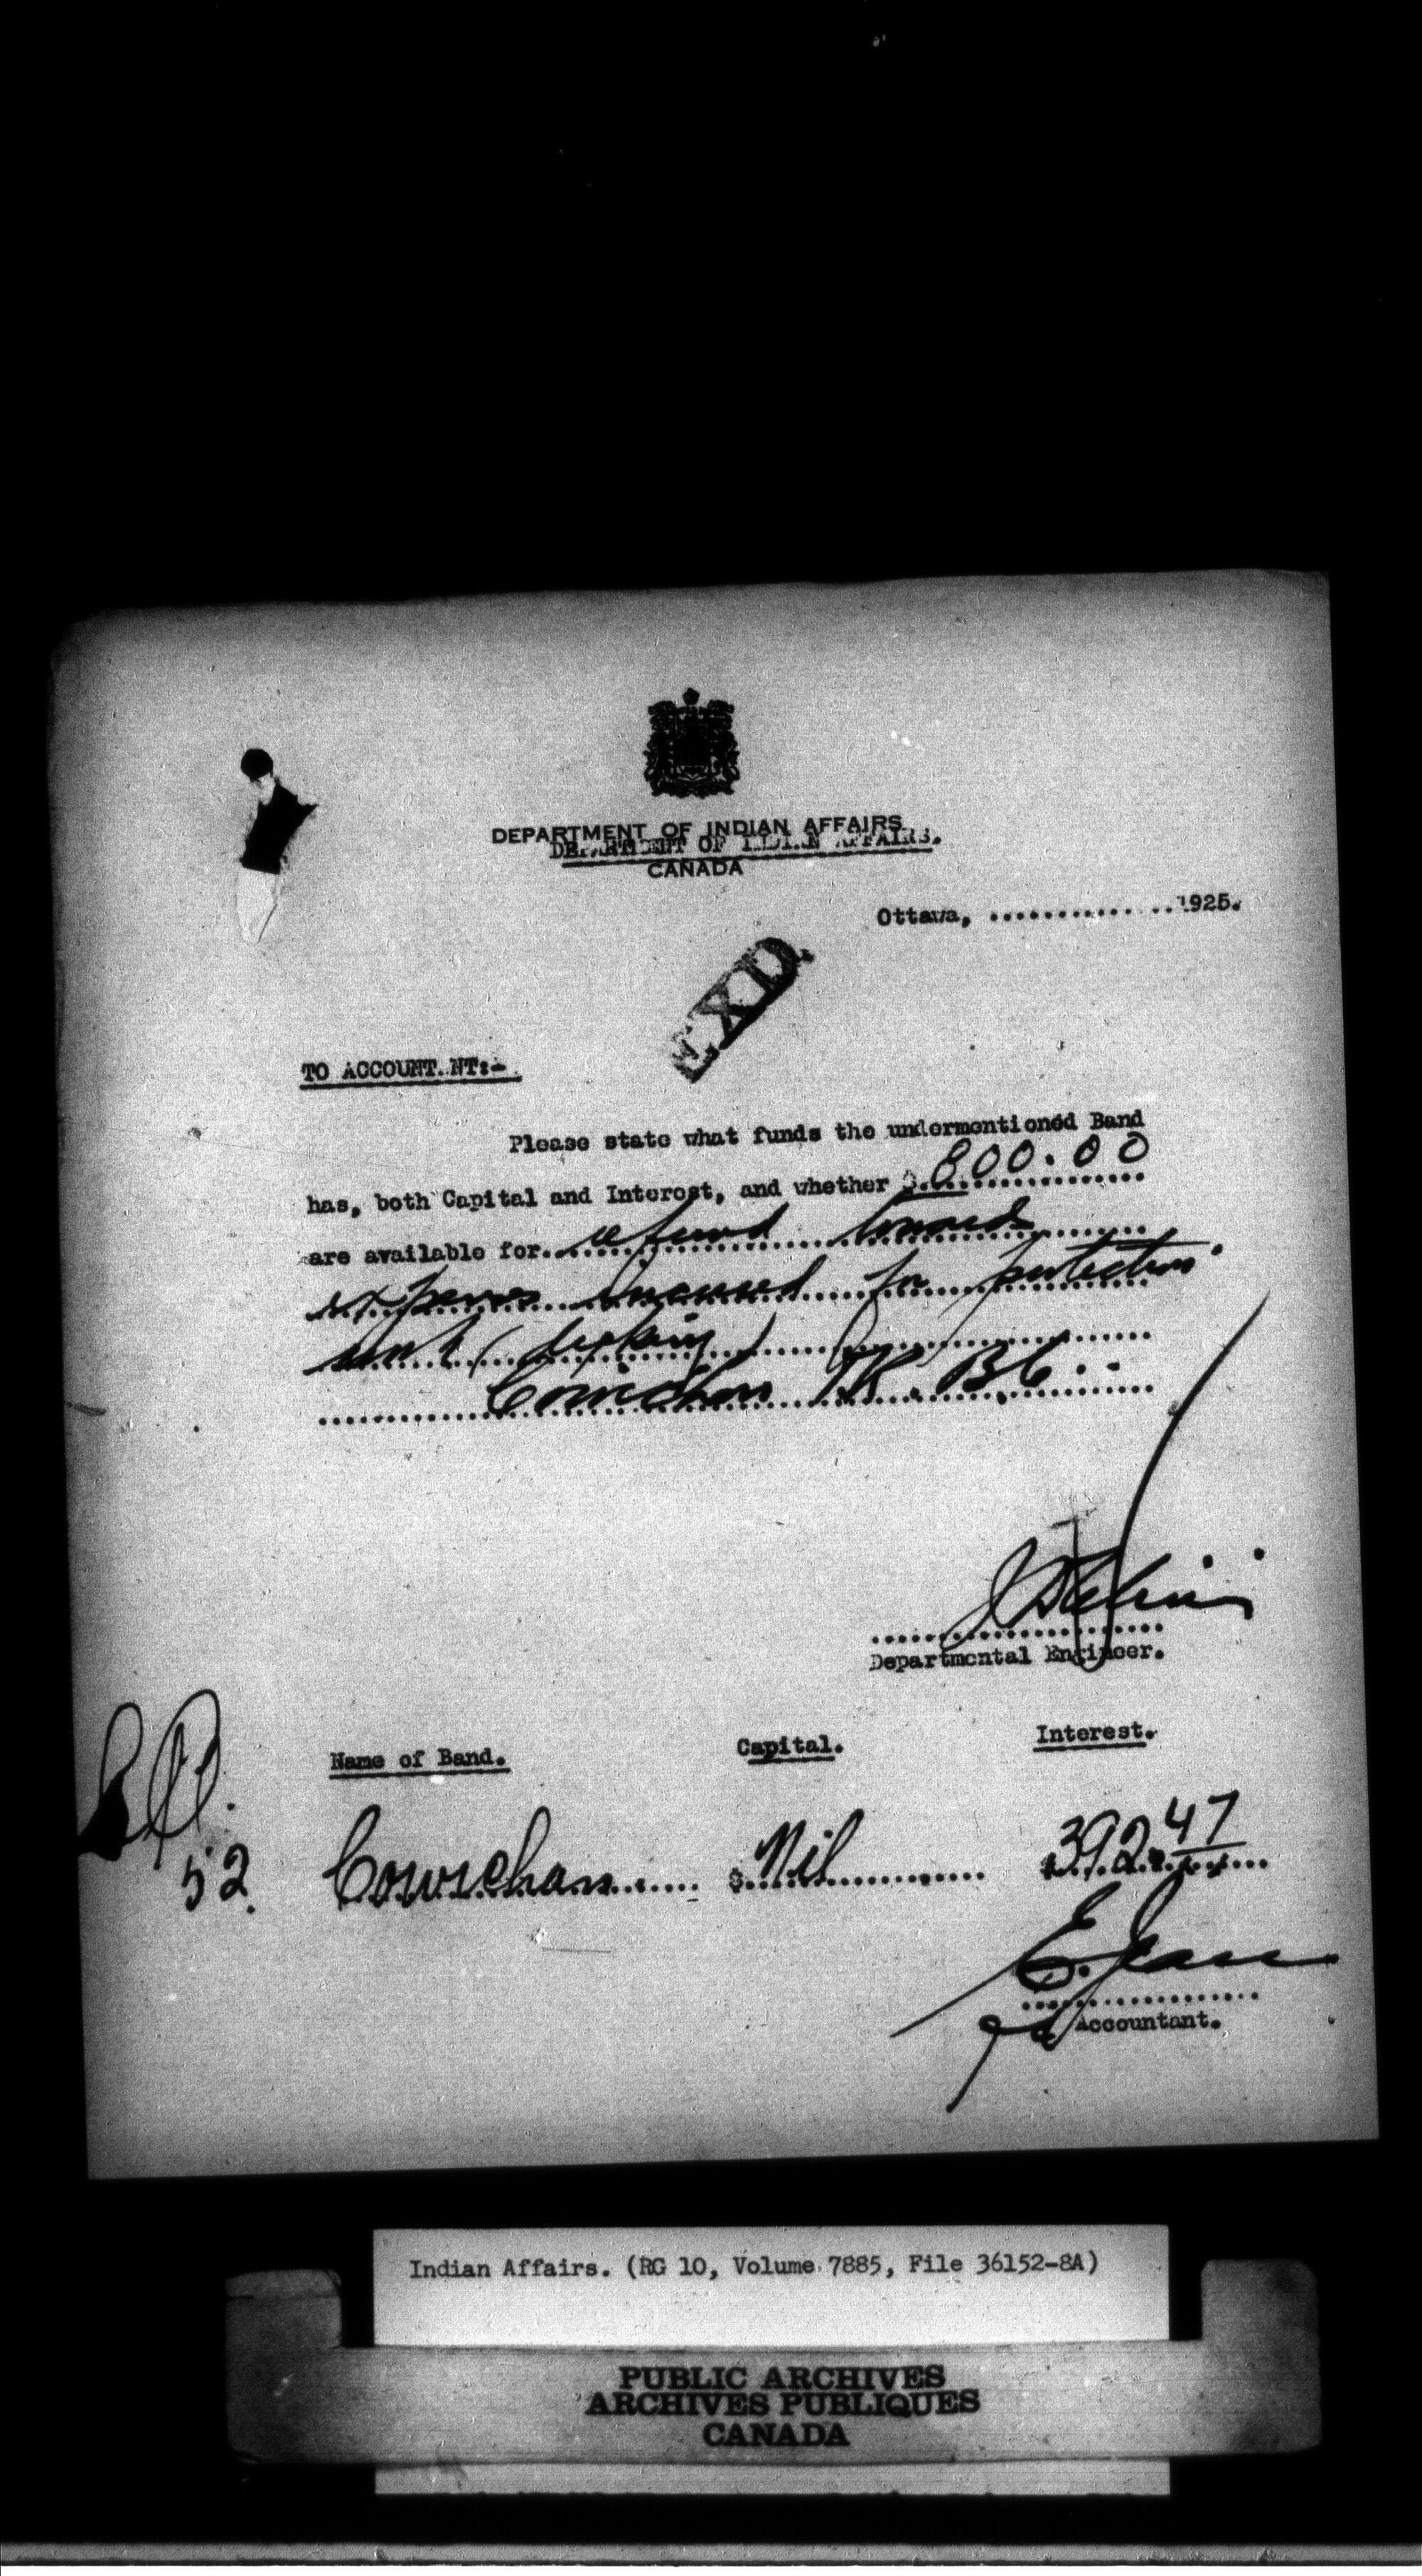 DEPARTMENT OF INDIAN AFFAIRS
DEPARTMENT OF INDIAN AFFAIRS.
CANADA
Ottawa, ..............1925.
EXD.
TO ACCOUNT.NT:-
Please state what funds the undermentioned Band
has, both Capital and Interest, and whether $.800.00
are available for refund towards
expenses incurred for protection
work
Cowichan I.R. B.C.
Departmental Engineer.
Name of Band. Capital. Interest.
52. Cowichan $Nil $392.47
E. 
Accountant.
Indian Affairs. (RG 10, Volume 7885, File 36152-8A)
PUBLIC ARCHIVES
ARCHIVES PUBLIQUES
CANADA